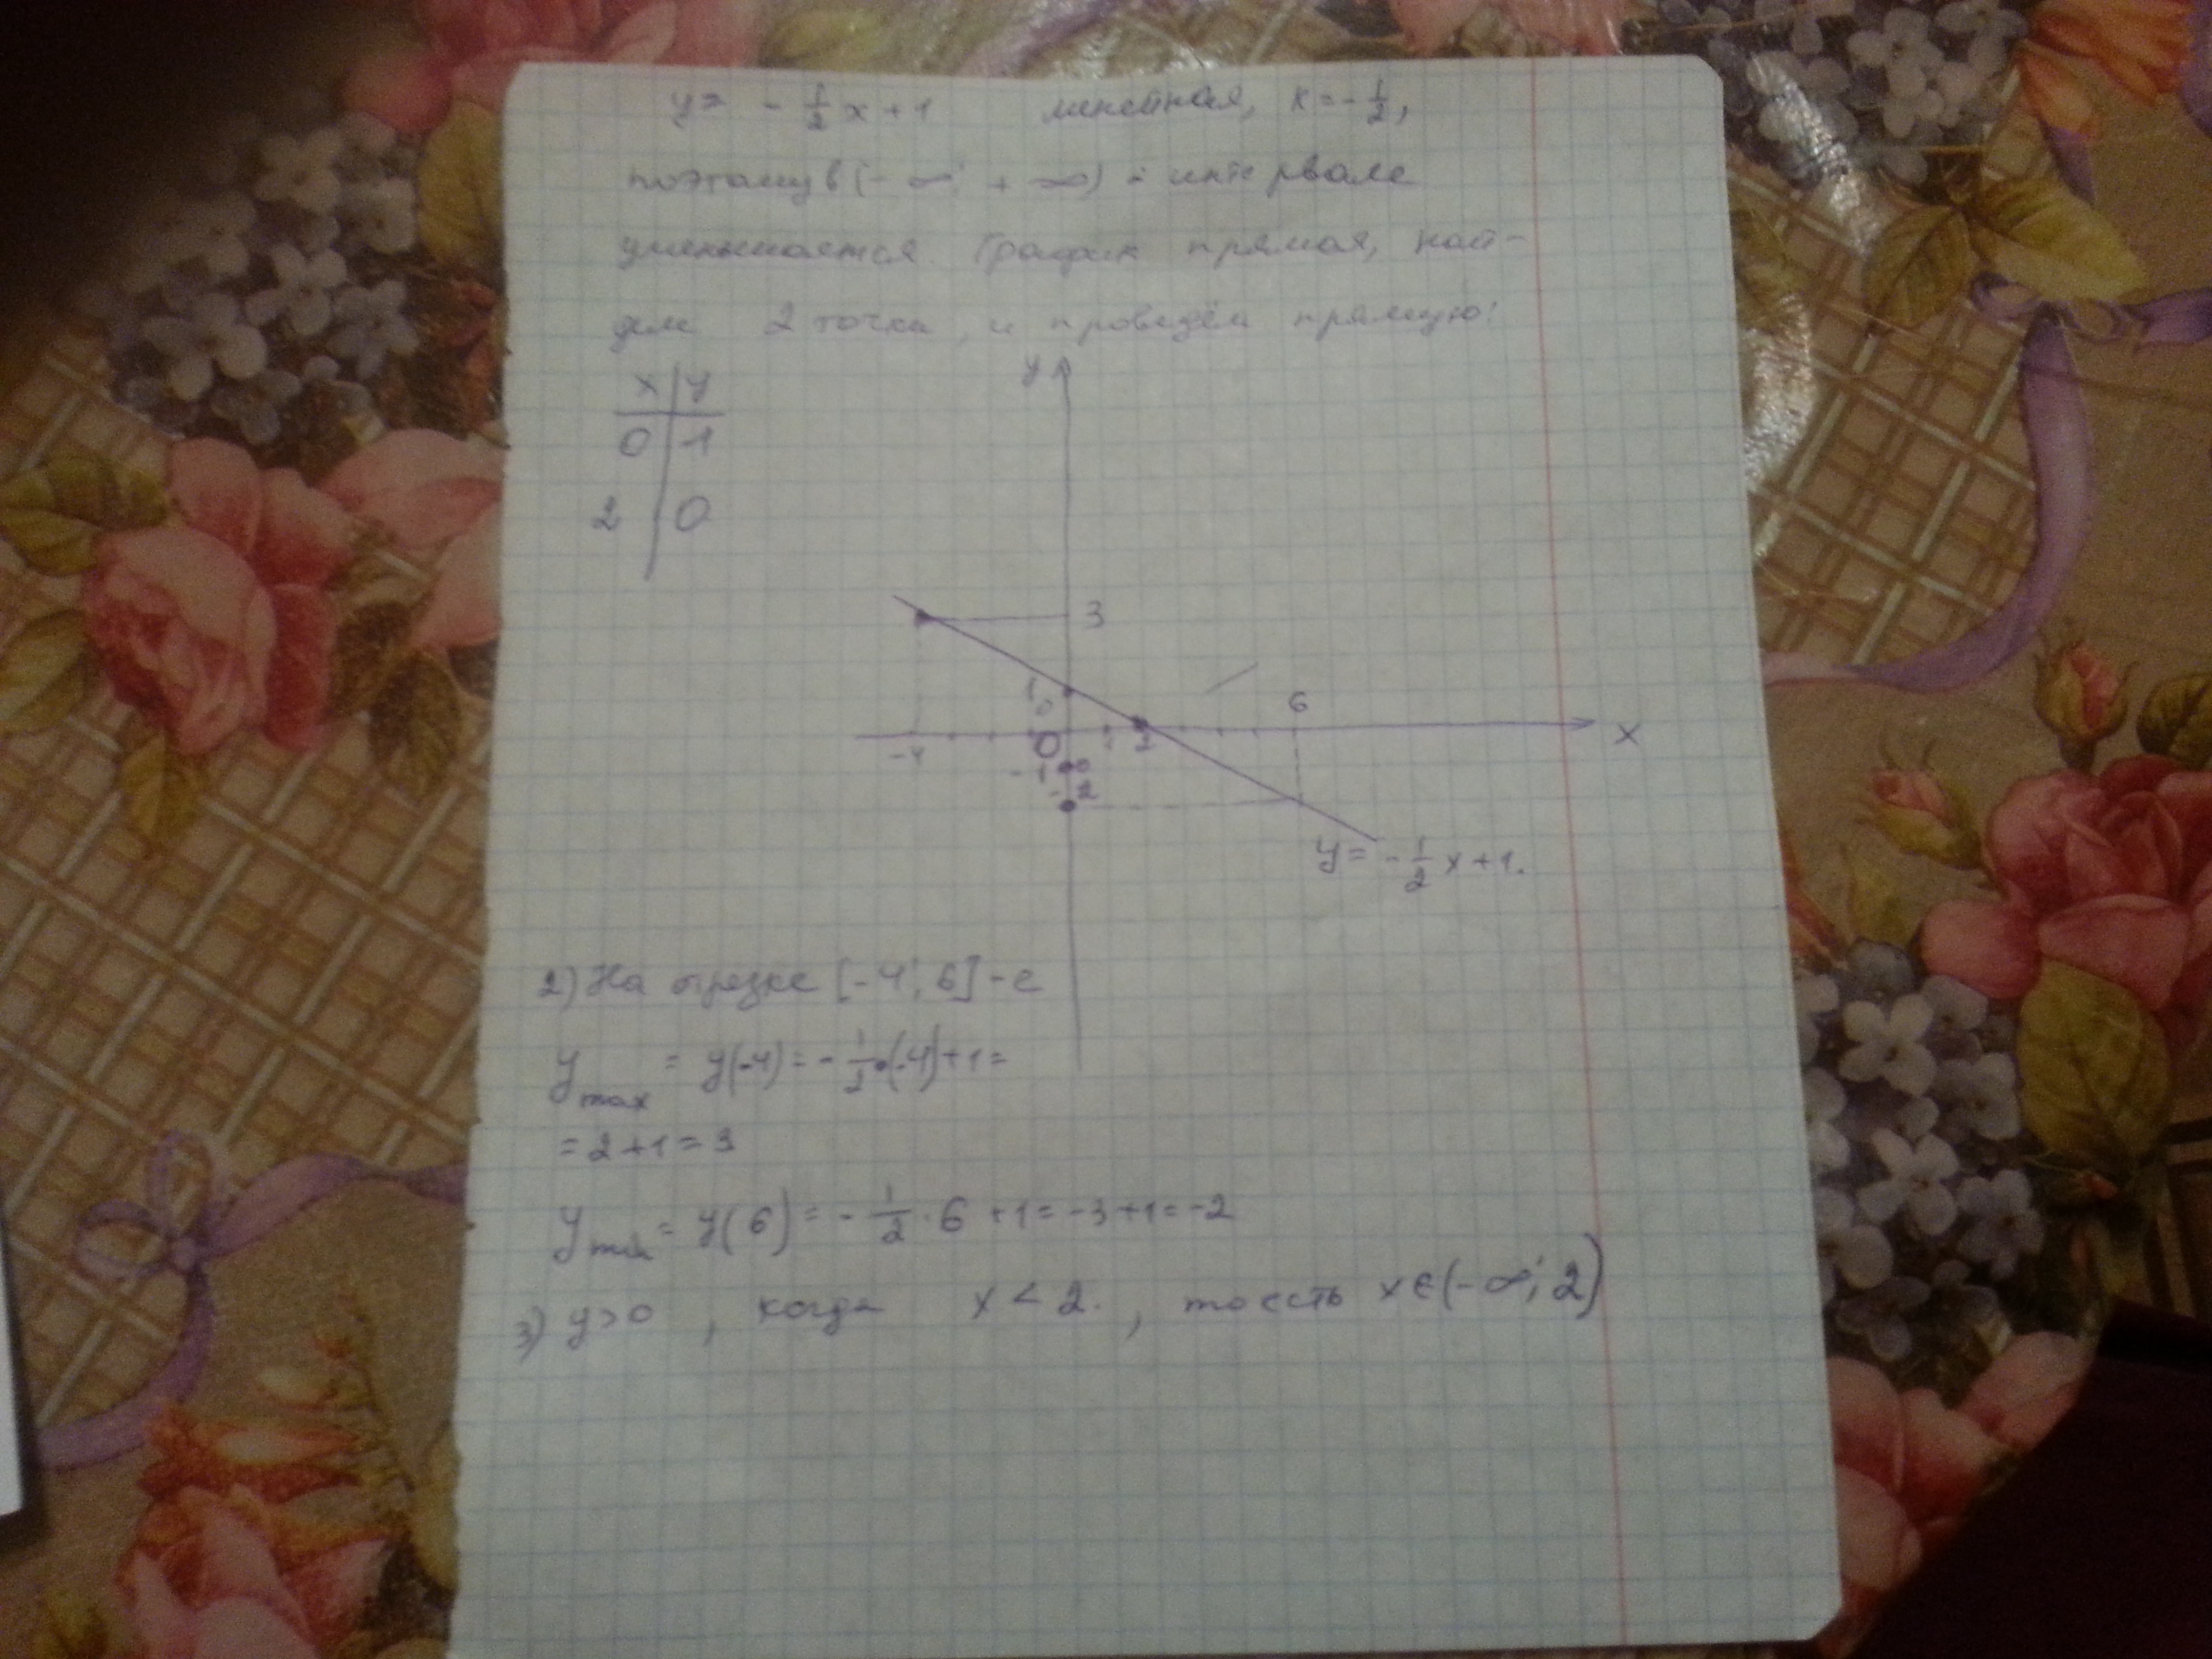 y = -1/2 x + 1 линейная, k = -1/2,
поэтому в (-∞; +∞) - интервале
уменьшается. График прямая, най-
дем 2 точки, и проведём прямую:
x | y
0 | 1
2 | 0
y
3
1
0
6
-4
0
1
2
x
-1
-2
y = -1/2 x + 1.
2) На отрезке [-4; 6] - е
y max = y(-4) = -1/2 · (-4) + 1 =
= 2 + 1 = 3
y min = y(6) = -1/2 · 6 + 1 = -3 + 1 = -2
3) y > 0, когда x < 2. , то есть x ∈ (-∞; 2)